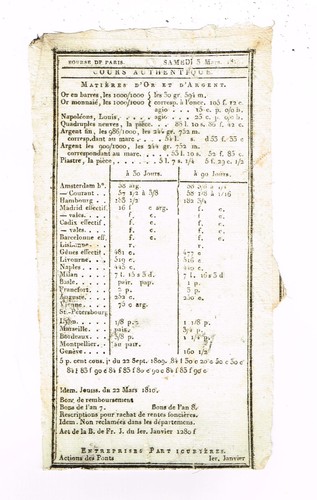 BOURSE DE PARIS. SAMEDI 3 Mars
COURS AUTHENTIQUE.
MATIÈRES D'OR ET D'ARGENT.
Or en barres, les 1000/1000 } les 30 gr. 59½ m,
Or monnaié, les 1000/1000 } corresp. à l'once, 105 f. 12 c.
agio
Napoléons, Louis, agio
Quadruples neuves, la pièce. 86 f. 42 c.
Argent fin, les 986/1000, les 244 gr. 752 m.
correspondant au marc 53 f. 53 c
Argent les 900/1000, les 244 gr. 752 m.
correspondant au marc. 52 f. 83 c.
Piastre, la pièce, 5 l. 7 s. 1/4 5 f. 29 c. 1/2
à 30 Jours. à 90 Jours.
Amsterdam b°.
— Courant 57 1/2 à 3/8
Hambourg 183 1/2 182 3/4
Madrid effectif. 16 f c arg. f. c.
— vales. f. c. f. c.
Cadix effectif f. c. f. c.
— vales. f. c. f. c.
Barcelonne eff. f. c. f. c.
Lisbonne r. r.
Gênes effectif 481 c. 477 c
Livourne. 519 c. 516 c
Naples 443 c. 440 c.
Milan 7 l. 15 s 5 d 7 l. 16 s 3 d
Basle pair. pap. 1 p.
Francfort. 5 p. 5 p.
Auguste. 252 c. 250 c.
Vienne. 70 c arg.
St.-Pétersbourg
Lyon 1/8 p. 1 p.
Marseille. pair.
Bordeaux. 3/8 p 1 p.
Montpellier. au pair.
Genève 160 1/2
5 p. cent cons. jr du 22 Sept. 1809. 84 f 30 c 20 c 30 c 50 c
84 f 85 f 90 c 84 f 85 f 80 c 90 c 84 f 85 f 90 c
Idem. Jouiss. du 22 Mars 1810.
Bons de remboursement
Bons de l'an 7. Bons de l'an 8.
Rescriptions pour rachat de rentes foncières.
Idem. Non réclamées dans les départemens.
Act de la B. de Fr. J. du 1er. Janvier 1280 f
ENTREPRISES PARTICULIÈRES.
Actions des Ponts 1er. Janvier